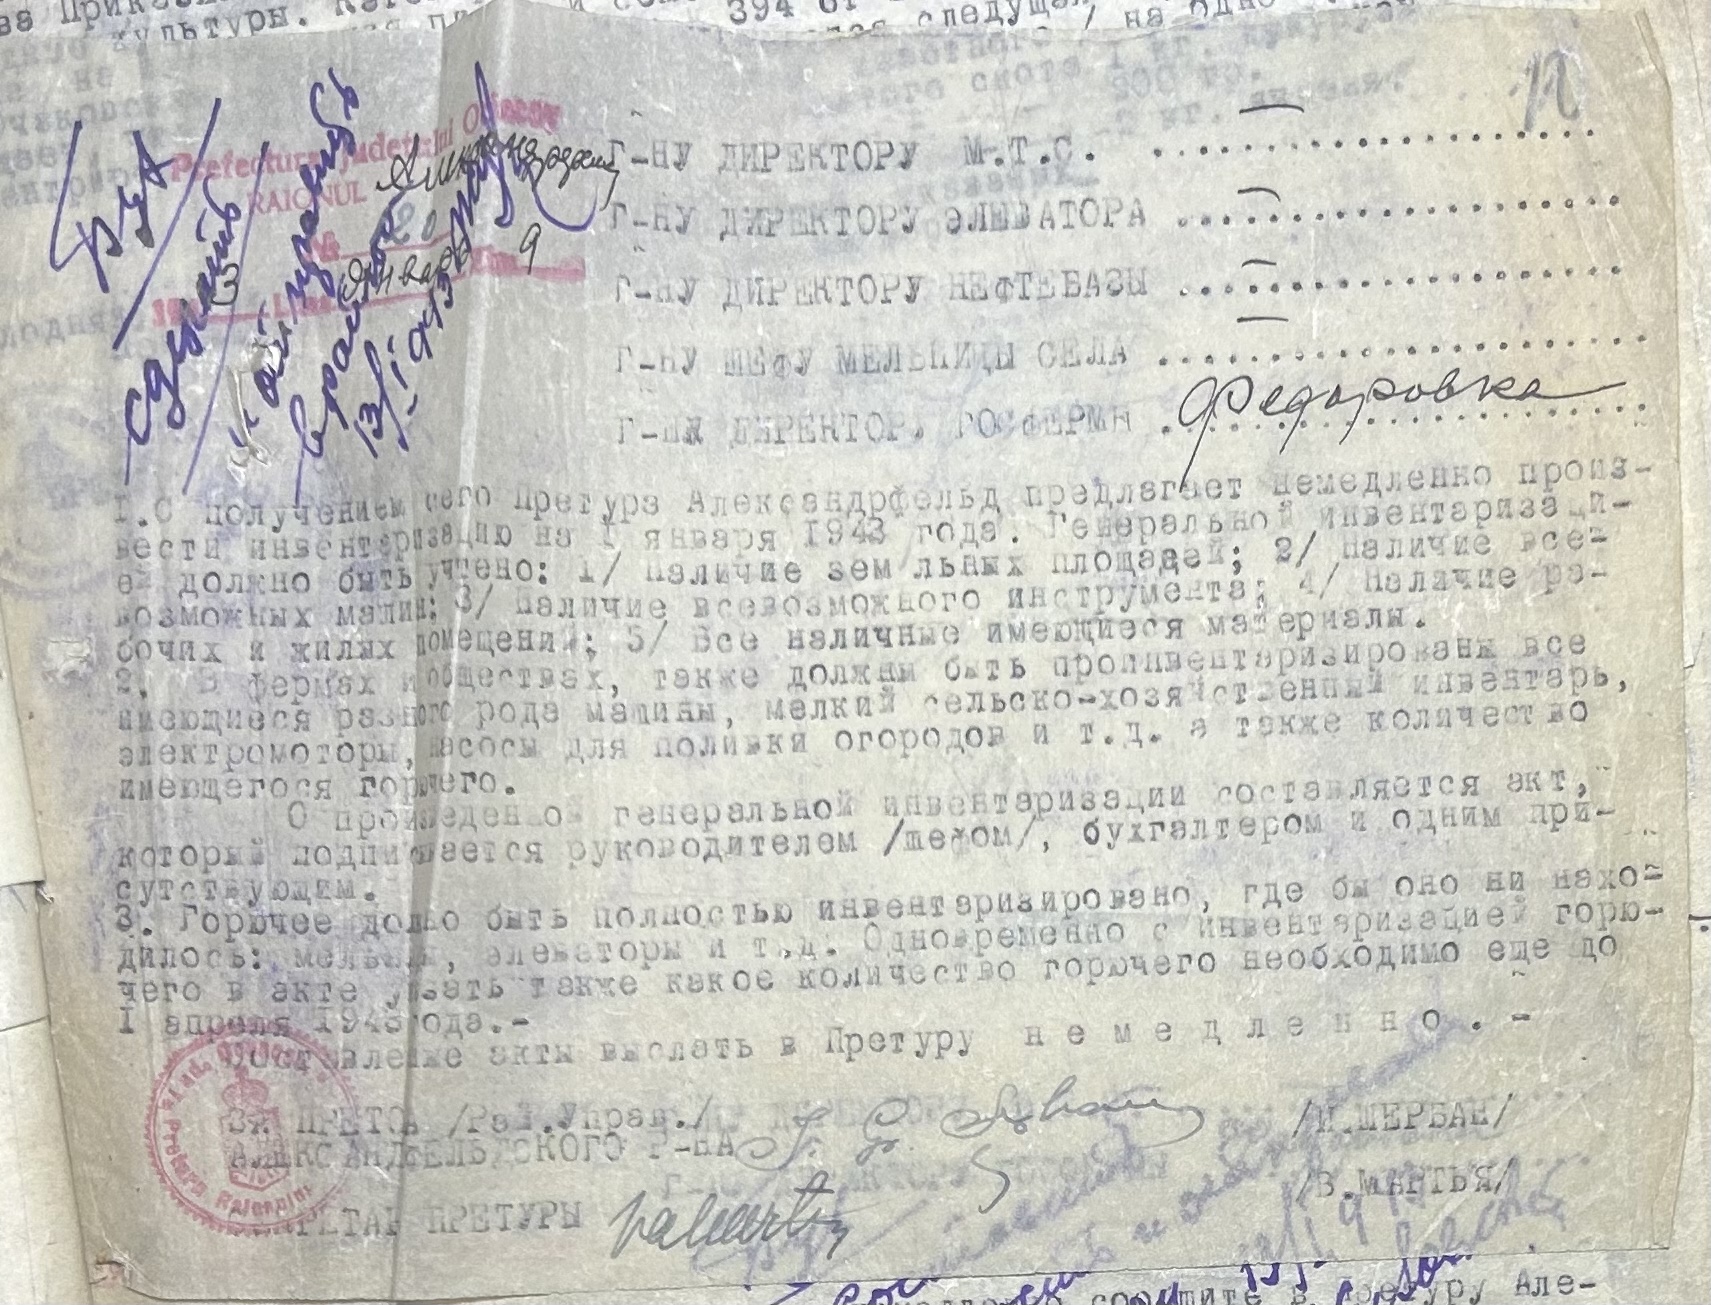 394 от
культуры.
12
Бух
сделать
и отправить
в район
13/I 1943
Prefectura Judetului
RAIONUL
№ 20
Января 9
Г-НУ ДИРЕКТОРУ М.Т.С. ....................
Г-НУ ДИРЕКТОРУ ЭЛЕВАТОРА ....................
Г-НУ ДИРЕКТОРУ НЕФТЕБАЗЫ ....................
Г-НУ ШЕФУ МЕЛЬНИЦЫ СЕЛА ....................
ДИРЕКТОР ГОСФЕРМЫ Федоровка
I.С получением сего Претура Александрфельд предлагает немедленно произ-
вести инвентаризацию на I января 1943 года. Генеральной инвентаризаци-
ей должно быть учтено: 1/ Наличие зем льных площадей; 2/ Наличие все-
возможных машин; 3/ Наличие всевозможного инструмента; 4/ Наличие ра-
бочих и жилых помещений; 5/ Все наличные имеющиеся материалы.
2. В фермах и обществах, также должны быть проинвентаризированы все
имеющиеся разного рода машины, мелкий сельско-хозяйственный инвентарь,
электромоторы, насосы для поливки огородов и т.д. а также количество
имеющегося горючего.
О произведенной генеральной инвентаризации составляется акт,
который подписывается руководителем /шефом/, бухгалтером и одним при-
сутствующим.
3. Горючее должно быть полностью инвентаризировано, где бы оно ни нахо-
дилось: элеваторы и т.д. Одновременно с инвентаризацией горю-
чего в акте также какое количество горючего необходимо еще до
I апреля 1943 года.-
акты выслать в Претуру н е м е д л е н н о . -
ПРЕТОР /Рай.Управ./ /И.ШЕРБАН/
АЛЕКСАНДФЕЛЬДСКОГО Р-НА
/В.МАРТЬЯ/
ПРЕТУРЫ
Pretura Raionului
сообщите в Претуру Але-